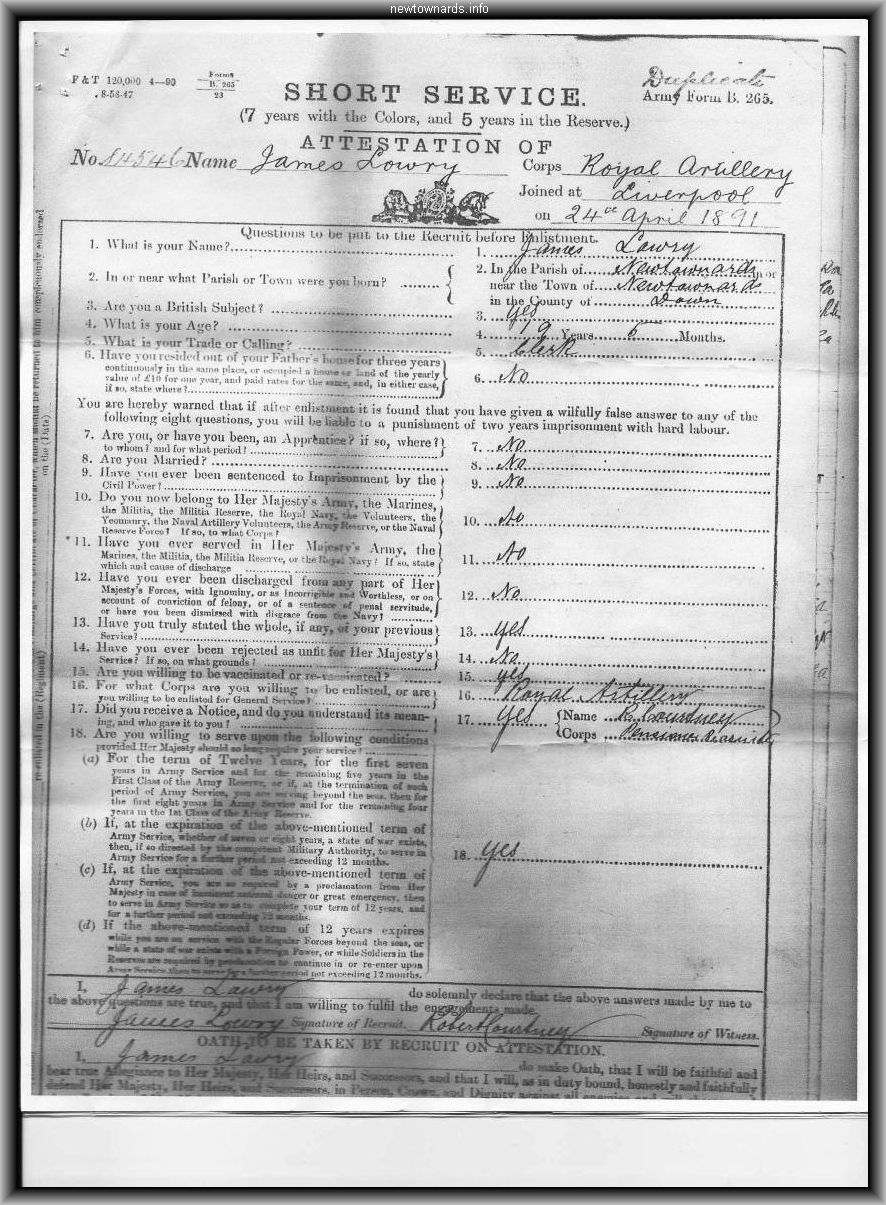 newtownards.info
F & T 120,000 4—90
8-58-47
Forms
B. 265
23
Duplicate
Army Form B. 265.
SHORT SERVICE.
(7 years with the Colors, and 5 years in the Reserve.)
ATTESTATION OF
No. 84546 Name James Lowry Corps Royal Artillery
Joined at Liverpool
on 24th April 1891
Questions to be put to the Recruit before Enlistment.
1. What is your Name? 1. James Lowry
2. In or near what Parish or Town were you born? 2. In the Parish of Newtownards in or
near the Town of Newtownards
in the County of Down
3. Are you a British Subject? 3. Yes
4. What is your Age? 4. 19 Years 6 Months.
5. What is your Trade or Calling? 5. Clerk
6. Have you resided out of your Father's house for three years
continuously in the same place, or occupied a house or land of the yearly
value of £10 for one year, and paid rates for the same, and, in either case,
if so, state where? 6. No
You are hereby warned that if after enlistment it is found that you have given a wilfully false answer to any of the
following eight questions, you will be liable to a punishment of two years imprisonment with hard labour.
7. Are you, or have you been, an Apprentice? if so, where?
to whom? and for what period? 7. No
8. Are you Married? 8. No
9. Have you ever been sentenced to Imprisonment by the
Civil Power? 9. No
10. Do you now belong to Her Majesty's Army, the Marines,
the Militia, the Militia Reserve, the Royal Navy, the Volunteers, the
Yeomanry, the Naval Artillery Volunteers, the Army Reserve, or the Naval
Reserve Force? If so, to what Corps? 10. No
*11. Have you ever served in Her Majesty's Army, the
Marines, the Militia, the Militia Reserve, or the Royal Navy? If so, state
which and cause of discharge 11. No
12. Have you ever been discharged from any part of Her
Majesty's Forces, with Ignominy, or as Incorrigible and Worthless, or on
account of conviction of felony, or of a sentence of penal servitude,
or have you been dismissed with disgrace from the Navy? 12. No
13. Have you truly stated the whole, if any, of your previous
Service? 13. Yes
14. Have you ever been rejected as unfit for Her Majesty's
Service? If so, on what grounds? 14. No
15. Are you willing to be vaccinated or re-vaccinated? 15. Yes
16. For what Corps are you willing to be enlisted, or are
you willing to be enlisted for General Service? 16. Royal Artillery
17. Did you receive a Notice, and do you understand its mean-
ing, and who gave it to you? 17. Yes Name R. Courtney
Corps Pensioner Recruiter
18. Are you willing to serve upon the following conditions
provided Her Majesty should so long require your service?
(a) For the term of Twelve Years, for the first seven
years in Army Service and for the remaining five years in the
First Class of the Army Reserve, or if, at the termination of such
period of Army Service, you are serving beyond the seas, then for
the first eight years in Army Service and for the remaining four
years in the 1st Class of the Army Reserve.
(b) If, at the expiration of the above-mentioned term of
Army Service, whether of seven or eight years, a state of war exists,
then, if so directed by the competent Military Authority, to serve in
Army Service for a further period not exceeding 12 months.
18. Yes
(c) If, at the expiration of the above-mentioned term of
Army Service, you are so required by a proclamation from Her
Majesty in case of imminent national danger or great emergency, then
to serve in Army Service so as to complete your term of 12 years, and
for a further period not exceeding 12 months.
(d) If the above-mentioned term of 12 years expires
while you are on service with the Regular Forces beyond the seas, or
while a state of war exists with a Foreign Power, or while Soldiers in the
Reserve are required by proclamation to continue in or re-enter upon
Army Service, then to serve for a further period not exceeding 12 months.
I, James Lowry do solemnly declare that the above answers made by me to
the above questions are true, and that I am willing to fulfil the engagements made.
James Lowry Signature of Recruit. Robert Courtney Signature of Witness.
OATH TO BE TAKEN BY RECRUIT ON ATTESTATION.
I, James Lowry do make Oath, that I will be faithful and
bear true Allegiance to Her Majesty, Her Heirs, and Successors, and that I will, as in duty bound, honestly and faithfully
defend Her Majesty, Her Heirs, and Successors, in Person, Crown, and Dignity against all enemies